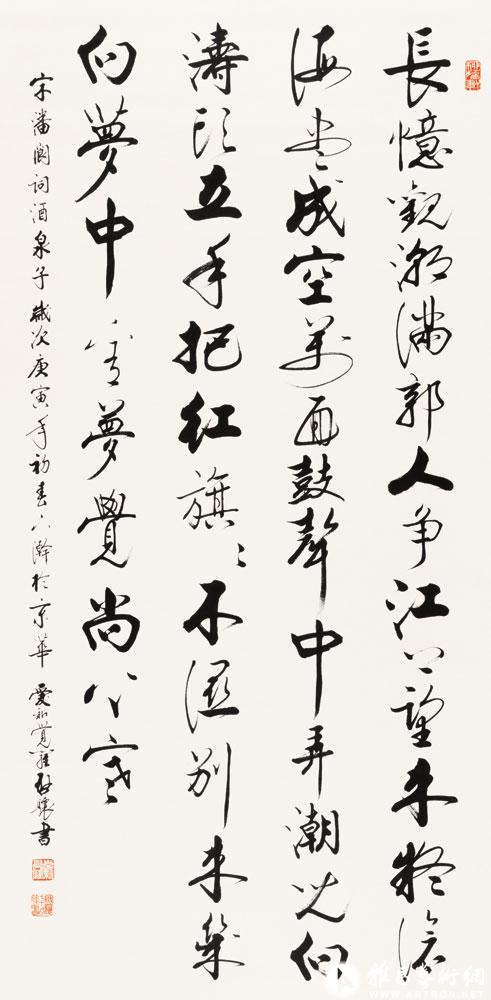 長憶觀潮滿郭人争江上望来疑滄
海盡成空萬面鼓聲中弄潮兒向
濤頭立手把红旗〻不濕别来幾
向夢中看夢覺尚心寒
宋潘閬詞酒泉子 歲次庚寅年初春下澣於京華 愛新覺羅啟驤書
雅昌藝術網
WWW.ARTRON.NET